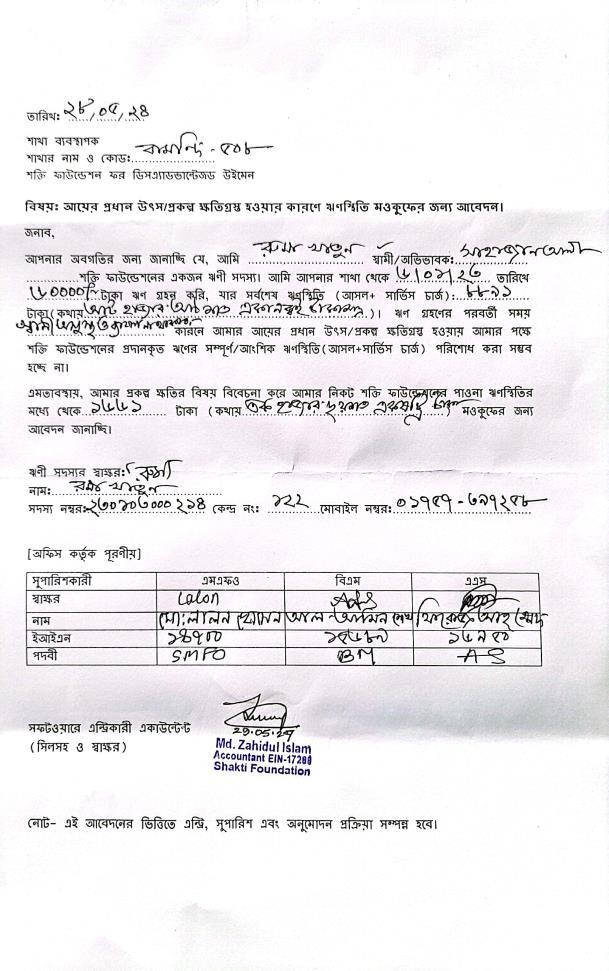 তারিখঃ ২৮/০৫/২৪
শাখা ব্যবস্থাপক
শাখার নাম ও কোডঃ বামন্দি - ৫০৮
শক্তি ফাউন্ডেশন ফর ডিসএ্যাডভান্টেজড উইমেন
বিষয়ঃ আয়ের প্রধান উৎস/প্রকল্প ক্ষতিগ্রস্থ হওয়ার কারণে ঋণস্থিতি মওকুফের জন্য আবেদন।
জনাব,
আপনার অবগতির জন্য জানাচ্ছি যে, আমি রুমা খাতুন স্বামী/অভিভাবক:
শক্তি ফাউন্ডেশনের একজন ঋণী সদস্য। আমি আপনার শাখা থেকে তারিখে
টাকা ঋণ গ্রহন করি, যার সর্বশেষ ঋণস্থিতি (আসল+ সার্ভিস চার্জ):
টাকা(কথায় আট হাজার আট শত )। ঋণ গ্রহণের পরবর্তী সময়
কারনে আমার আয়ের প্রধান উৎস/প্রকল্প ক্ষতিগ্রস্থ হওয়ায় আমার পক্ষে
শক্তি ফাউন্ডেশনের প্রদানকৃত ঋণের সম্পূর্ণ/আংশিক ঋণস্থিতি(আসল+সার্ভিস চার্জ) পরিশোধ করা সম্ভব
হচ্ছে না।
এমতাবস্থায়, আমার প্রকল্প ক্ষতির বিষয় বিবেচনা করে আমার নিকট শক্তি ফাউন্ডেশনের পাওনা ঋণস্থিতির
মধ্যে থেকে টাকা (কথায় এক হাজার ছয়শত টাকা মওকুফের জন্য
আবেদন জানাচ্ছি।
ঋণী সদস্যর স্বাক্ষর: রুমা
নাম: রুমা খাতুন
সদস্য নম্বর: কেন্দ্র নং: ১২২ মোবাইল নম্বর:
[অফিস কর্তৃক পূরণীয়]
সুপারিশকারী এমএফও বিএম এএস
স্বাক্ষর Lalon
নাম মো: লালন হোসেন আল-আমিন শেখ
ইআইএন
পদবী SMFO BM AS
29.05.24
সফটওয়ারে এন্ট্রিকারী একাউন্টেন্ট
(সিলসহ ও স্বাক্ষর)
Md. Zahidul Islam
Accountant EIN-17288
Shakti Foundation
নোট- এই আবেদনের ভিত্তিতে এন্ট্রি, সুপারিশ এবং অনুমোদন প্রক্রিয়া সম্পন্ন হবে।